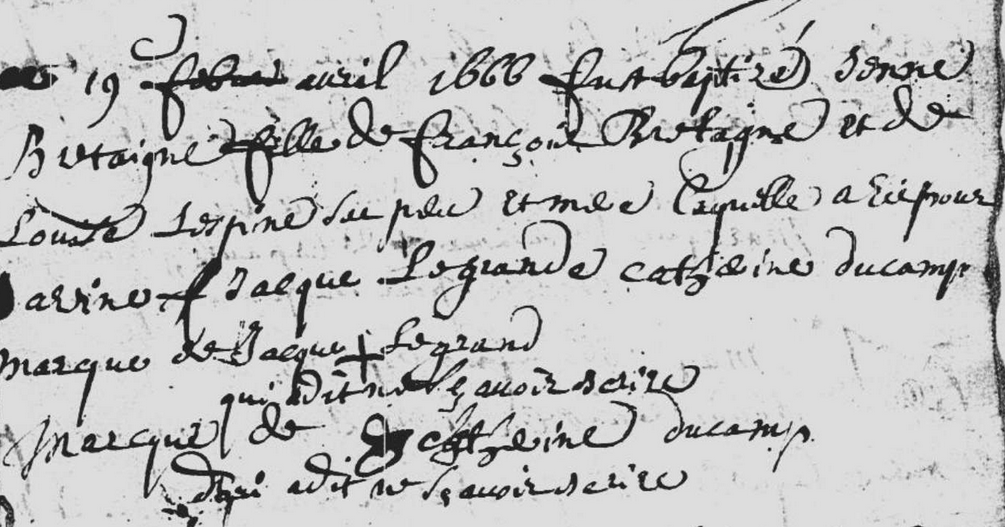 19 avril 1666 fust baptizé Jenne
Bretaigne fille de françois Bretaigne et de
Louise Lespine Su pere et mere laquelle a Eu pour
parine Jacque Legrande catherine ducamp
marque de Jacque Legrand
qui a dit ne sçavoir escrire
Marcque de catherine ducamp
qui a dit ne sçavoir escrire